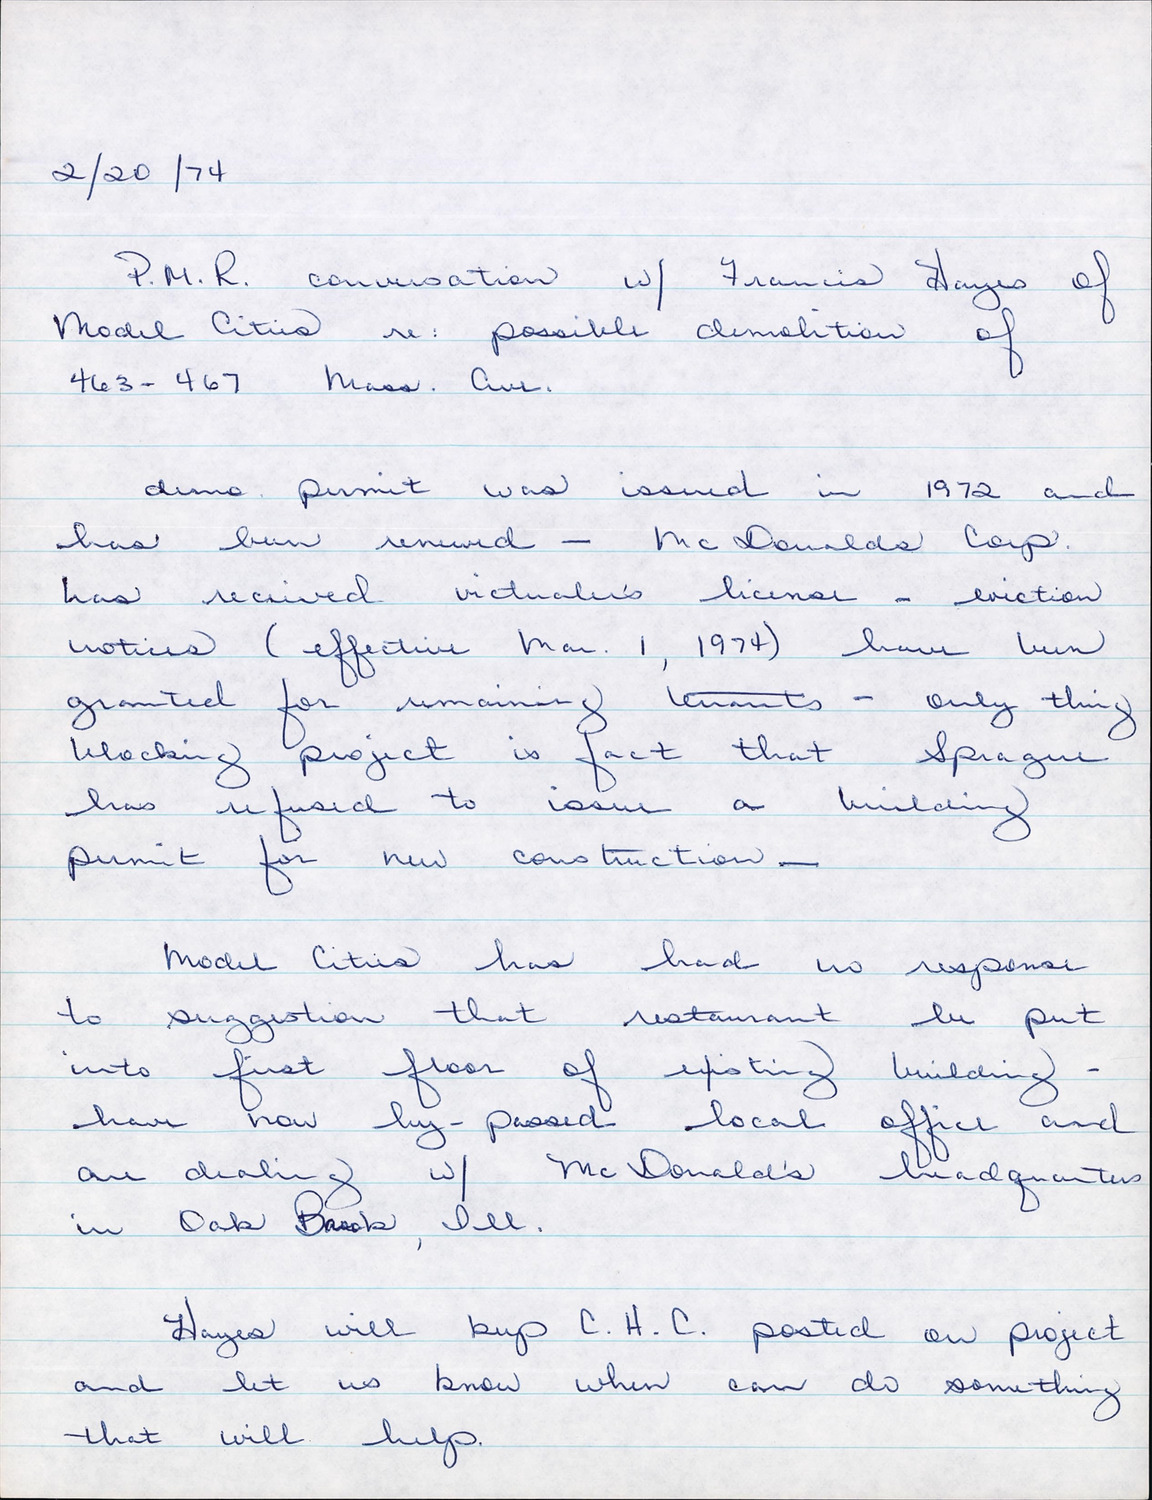 2/20/74
P.M.R. conversation w/ Francis Hayes of
Model Cities re: possible demolition of
463-467 Mass. Ave.
demo. permit was issued in 1972 and
has been renewed — McDonalds Corp.
has received victualer's license - eviction
notices (effective Mar. 1, 1974) have been
granted for remaining tenants - only thing
blocking project is fact that Sprague
has refused to issue a building
permit for new construction —
Model Cities has had no response
to suggestion that restaurant be put
into first floor of existing building -
have now by-passed local office and
are dealing w/ McDonald's headquarters
in Oak Brook, Ill.
Hayes will keep C.H.C. posted on project
and let us know when can do something
that will help.